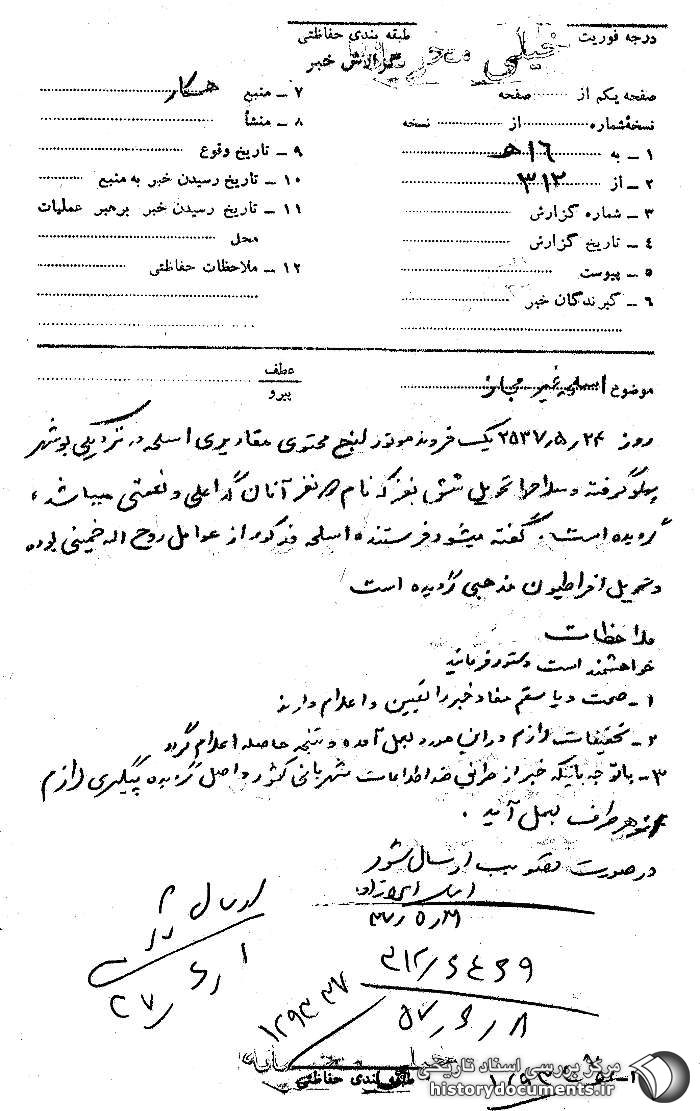 درجه فوریت
طبقه بندی حفاظتی
خیلی محرمانه
گزارش خبر
صفحه یکم از صفحه
نسخهٔ شماره از نسخه
۱ – به ۱۶ هـ
۲ – از ۳۱۲
۳ – شماره گزارش
۴ – تاریخ گزارش
۵ – پیوست
۶ – گیرندگان خبر
۷ – منبع همکار
۸ – منشأ
۹ – تاریخ وقوع
۱۰ – تاریخ رسیدن خبر به منبع
۱۱ – تاریخ رسیدن خبر برهبر عملیات
محل
۱۲ – ملاحظات حفاظتی
موضوع اسلحه غیر مجاز
عطف
پیرو
روز ۲۵۳۷٫۵٫۲۴ یک فروند موتور لنج محتوی مقادیری اسلحه در نزدیکی بوشهر
پهلو گرفته و سلاحها تحویل شش نفر که نام دو نفر آنان گداعلی و نعمتی میباشد،
گردیده است. گفته میشود فرستنده اسلحه مذکور از عوامل روح اله خمینی بوده
و تحویل افراطیون مذهبی گردیده است
ملاحظات
خواهشمند است دستور فرمائید
۱– صحت و یا سقم مفاد خبر را تعیین و اعلام دارند
۲– تحقیقات لازم در این مورد بعمل آمده و نتیجه حاصله اعلام گردد
۳– با توجه باینکه خبر از طریق ضد اطلاعات شهربانی کشور واصل گردیده پیگیری لازم
از هر طرف بعمل آید.
در صورت تصویب ارسال شود
۳۱۲٫۶۴۵۹
۵۷٫۶٫۸
ارسال
۱٫۶
۳۷
۱۲۹۳۳۷
خیلی محرمانه
طبقه بندی حفاظتی
مرکز بررسی اسناد تاریخی
historydocuments.ir